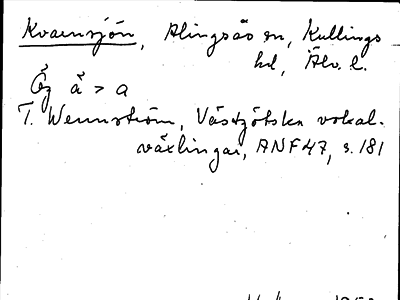 Kvarnsjön, Alingsås sn, Kullings
hd, Älv. l.
Ög å > a
T. Wennström, Västgötska vokal-
växlingar, ANF 47, s. 181